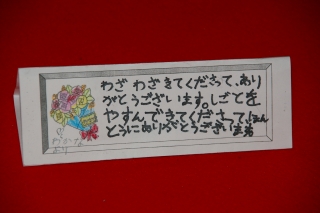 わざ わざきてくださって、あり
がとうございます。しごとを
やすんできてくださって、ほん
とうにありがとうございます
より